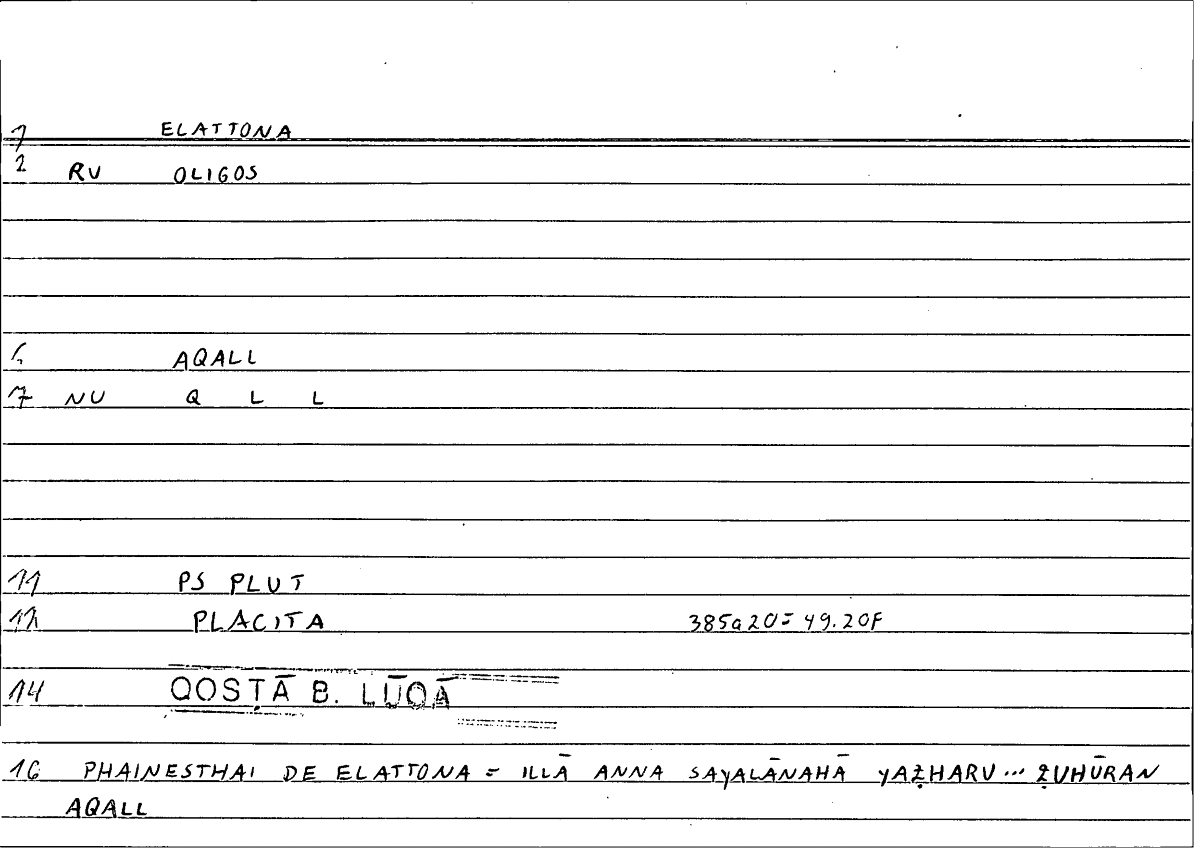 1 ELATTONA
2 RU OLIGOS
6 AQALL
7 NU Q L L
11 PS PLUT
12 PLACITA 385a20= 49.20F
14 QOSṬĀ B. LŪQĀ
16 PHAINESTHAI DE ELATTONA = ILLĀ ANNA SAYALĀNAHĀ YAẒHARU... ẒUHŪRAN
AQALL